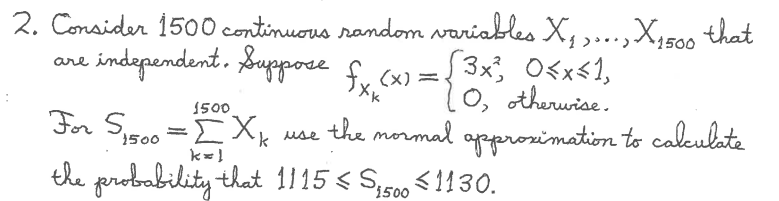 2. Consider 1500 continuous random variables X₁,...,X₁₅₀₀ that
are independent. Suppose f_{X_k}(x) = { 3x², 0≤x≤1,
0, otherwise.
For S₁₅₀₀ = ∑_{k=1}^{1500} X_k use the normal approximation to calculate
the probability that 1115 ≤ S₁₅₀₀ ≤ 1130.